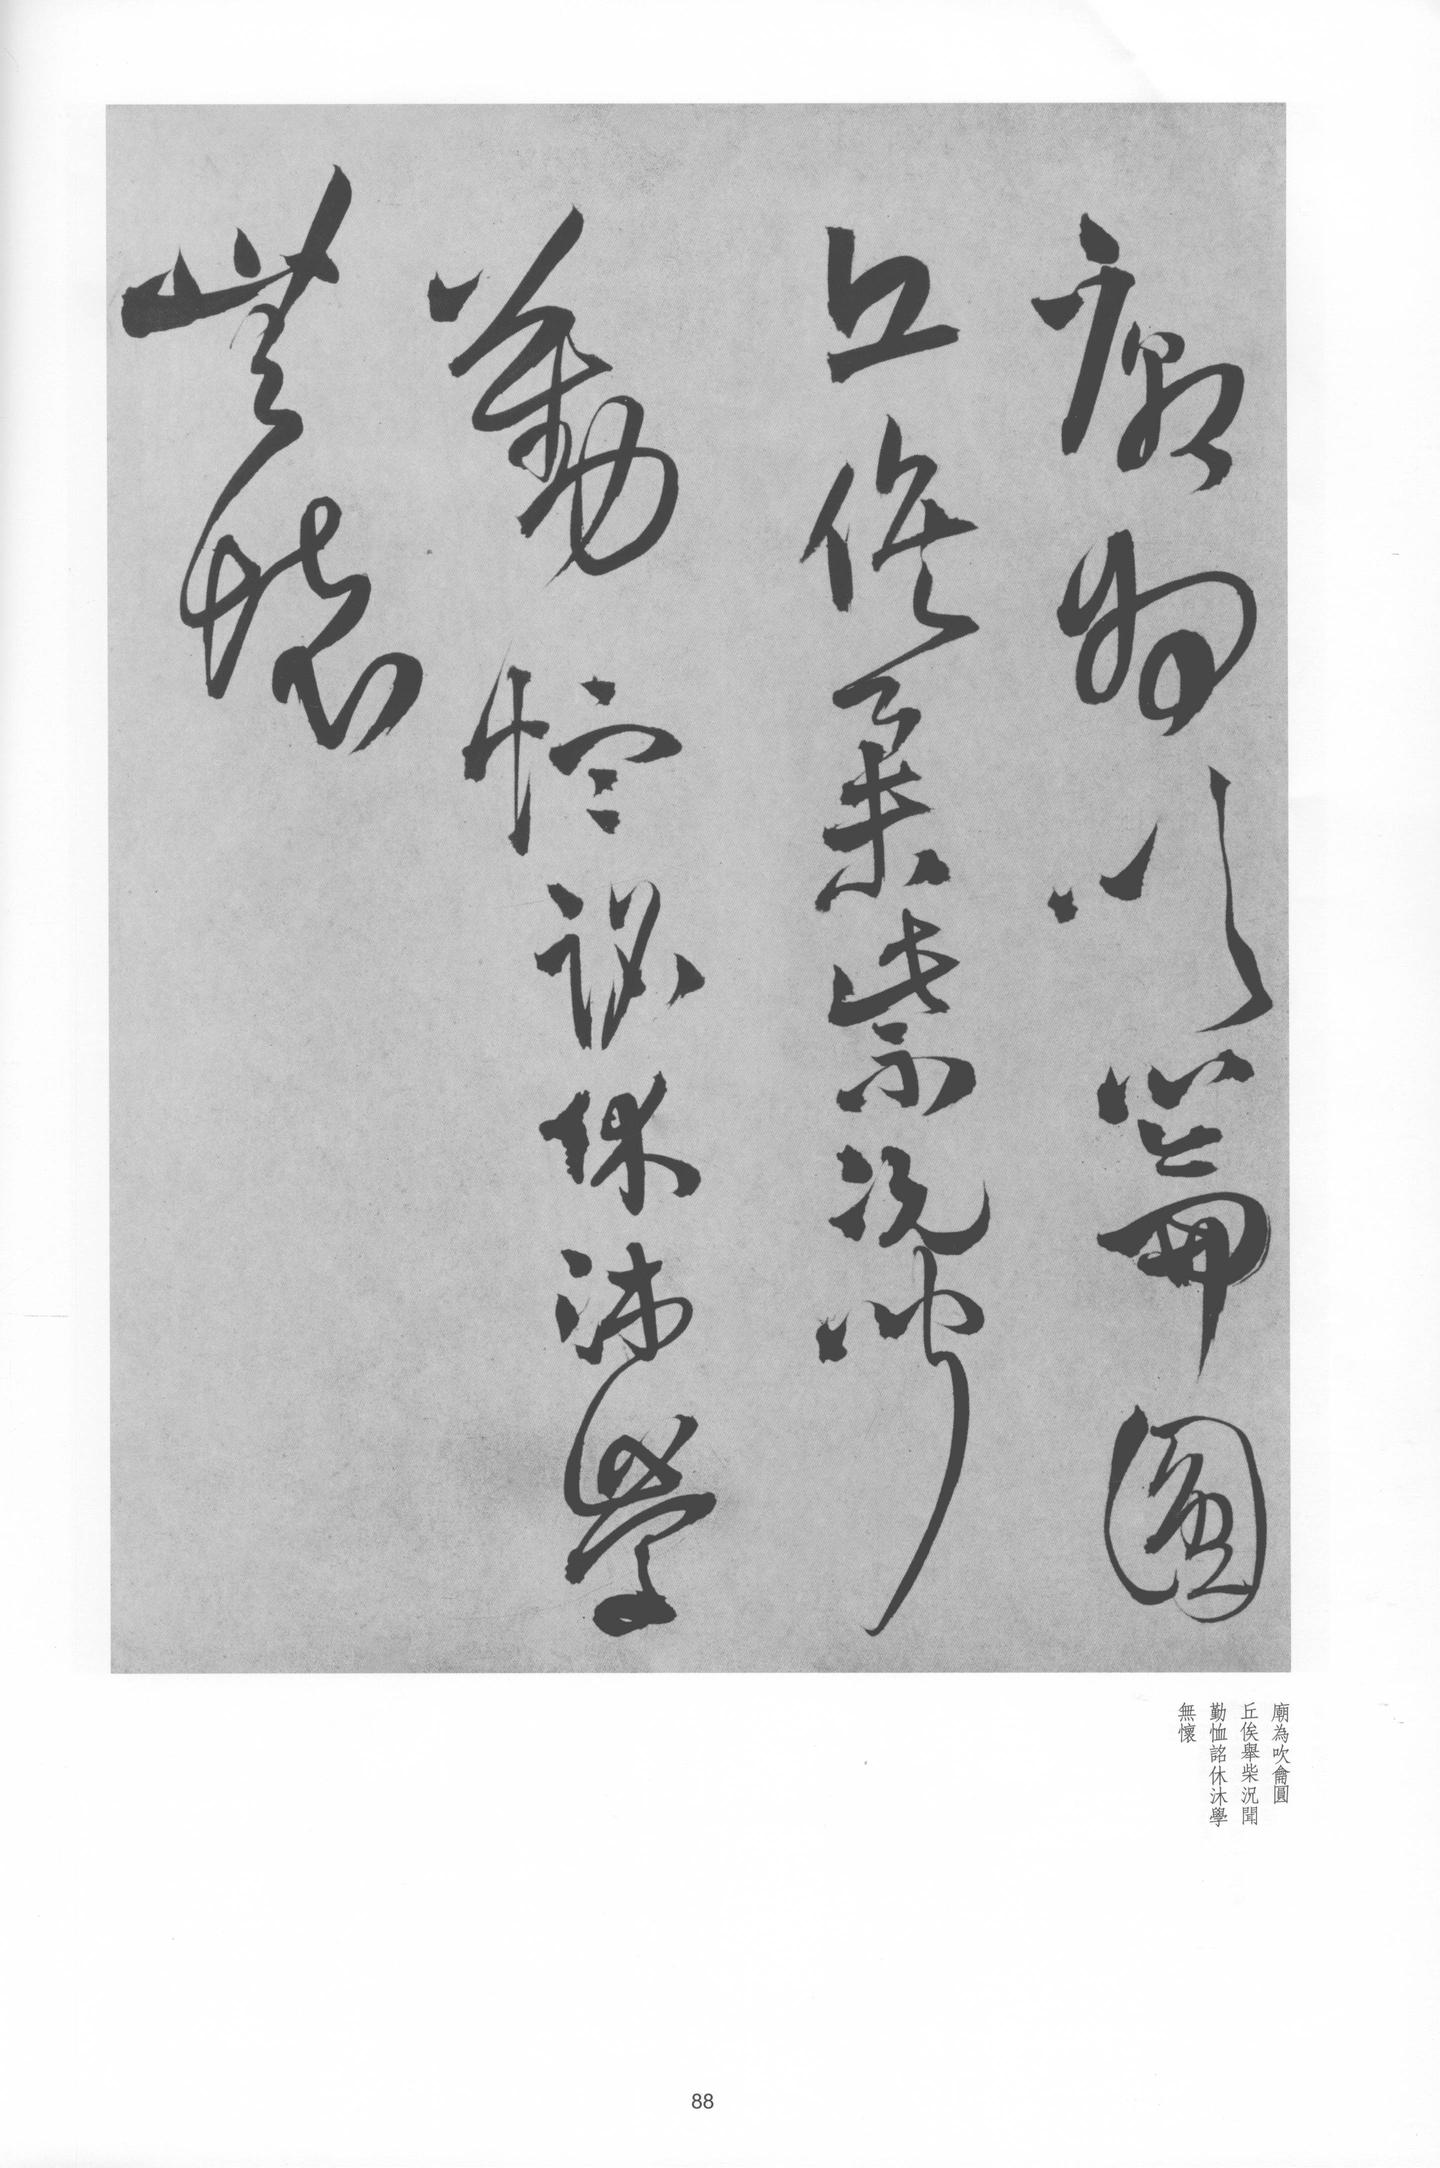 廟為吹龠圓
丘俟舉柴況聞
勤恤詔休沐學
無懷
廟為吹龠圓
丘俟舉柴況聞
勤恤詔休沐學
無懷
88